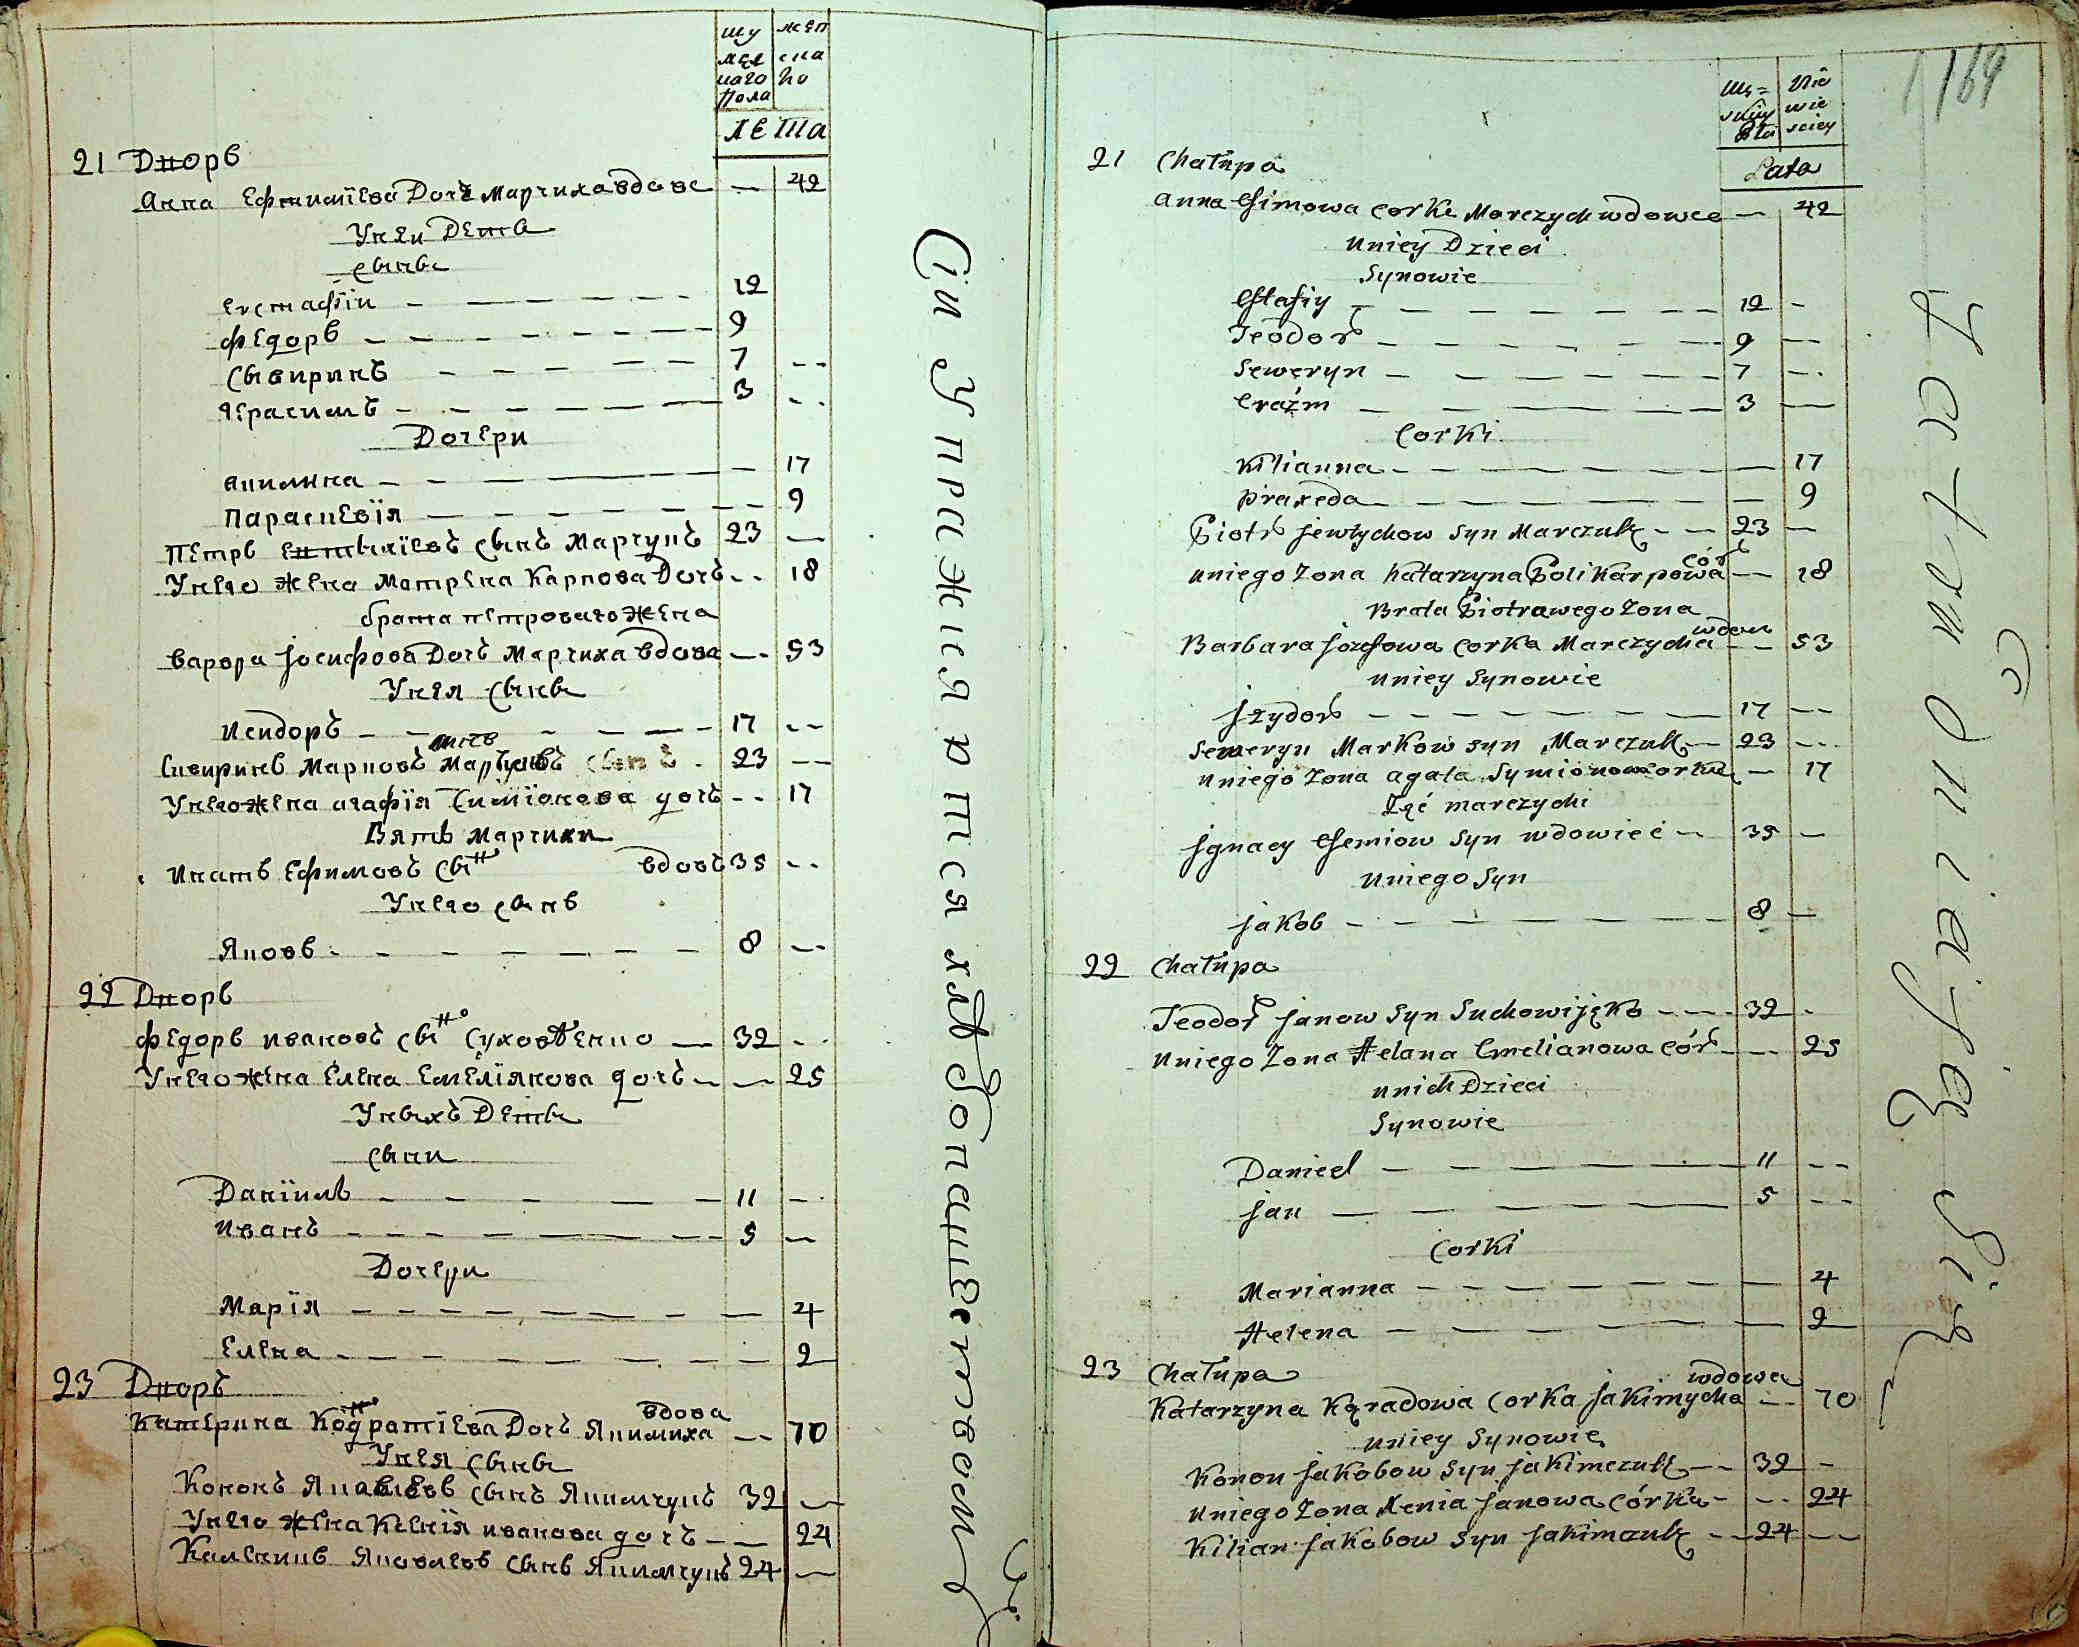 му жеп
жел ска
наго ho
Пола
ЛЕта
21 Дворъ
Анна Ефтимїева Дочъ Марчиха вдова — 42
У неи Дети
Сыны
Евстафїи 12
Федоръ 9
Сывиринъ 7
Герасимъ 3
Дочери
Килиина 17
Парасцевїя 9
Петръ Евтыхїевъ сынъ Марчукъ 23 —
У него жена Матрена Карпова Дочъ 18
брата петроваго жена
Варвра Іосифова Дочъ Марчиха вдова — 53
У нея сыны
Исидоръ 17
Сивиринъ Марковъ Марчукъ сынъ 23 —
У него жена агафїя Симїонова дочъ 17
Зять Марчихи
Игнатъ Ефимовъ сынъ вдовъ 35
У него сынъ
Яковъ 8
22 Дворъ
Федоръ ивановъ сынъ Суховѣенко — 32
У него жена Елена Емелїянова дочъ — 25
У ныхъ Дети
сыни
Данїилъ 11
Иванъ 5
Дочери
Марїя 4
Елена 2
23 Дворъ
вдова
Катерина Кодратїева Дочъ Якимиха — 70
У нея сыны
Кононъ Яковлевъ сынъ Якимчукъ 32 —
У него жена Ксенїя иванова дочъ — 24
Калениkъ Яковлевъ сынъ Якимчукъ 24 —
Сіи Упражняются хлѣбопашествомъ
169
Mę= Nie
skiey wie
Płci sciey
Lata
21 Chałupa
Anna Efimowa corka Marczycha wdowa — 42
u niey Dzieci
Synowie
Estafiy 12 —
Teodor 9 —
Seweryn 7 —
Erazm 3 —
Corki
Kilianna 17
Praxeda 9
Piotr Jewtychow Syn Marczuk 23 —
u niego Zona Katarzyna Polikarpowa cór — 18
Brata Piotrawego Zona
wdow
Barbara Jozefowa Corka Marczycha — 53
u niey Synowie
Jzydor 17 —
Seweryn Markow syn Marczuk 23 —
u niego Zona agata Symionowa corka — 17
Zęć marczychi
Jgnacy Efemiow Syn wdowiec 35 —
u niego Syn
Jakob 8 —
22 Chałupa
Teodor Janow Syn Suchowijęko 32
u niego Zona Helana Emelianowa Cór — 25
u nich Dzieci
Synowie
Daniel 11 —
Jan 5 —
Corki
Marianna 4
Helena 2
23 Chałupa
wdowa
Katarzyna Kąradowa Corka Jakimycha — 70
u niey Synowie
Konon Jakobow Syn Jakimczuk 32 —
u niego Zona Xenia Janowa Córka — 24
Kilian Jakobow Syn Jakimczuk 24 —